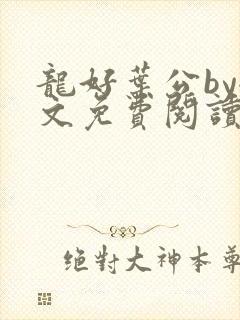 龍好葉公by
文免費閱讀
絕對大神本尊